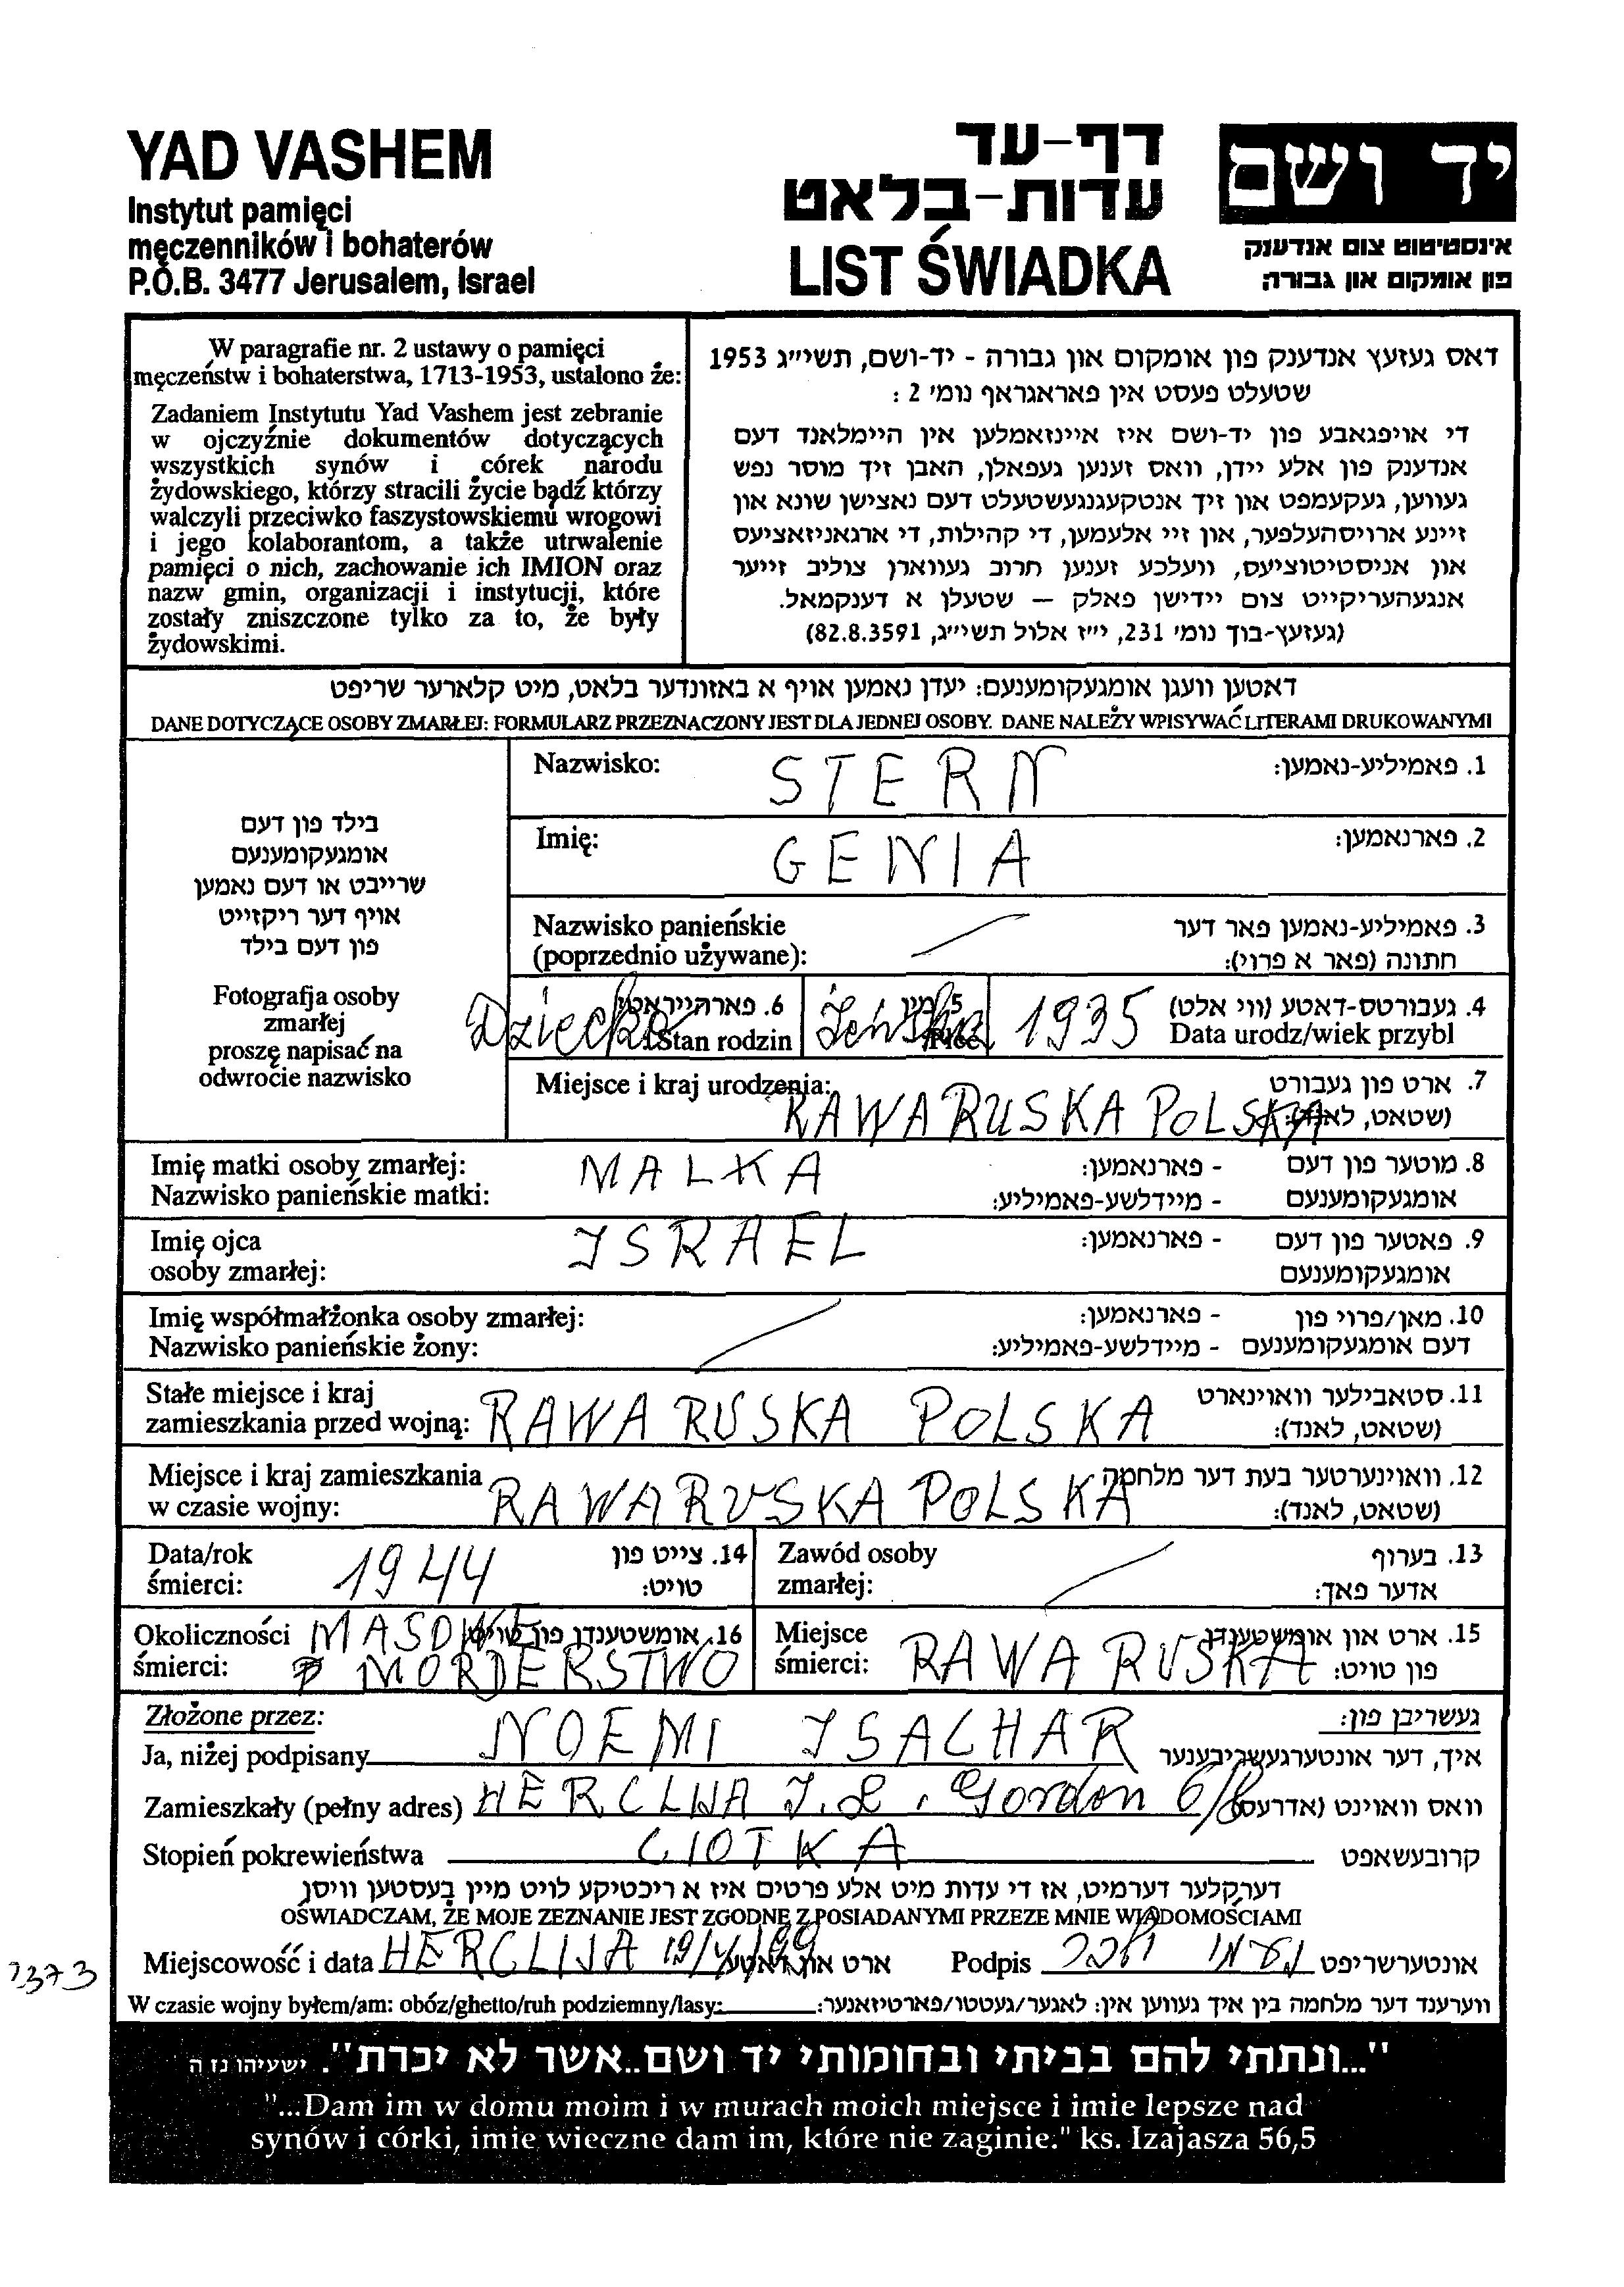 YAD VASHEM
Instytut pamięci
męczenników i bohaterów
P.O.B. 3477 Jerusalem, Israel
דף-עד
עדות-בלאט
LIST ŚWIADKA
יד ושם
אינסטיטוט צום אנדענק
פון אומקום און גבורה
W paragrafie nr. 2 ustawy o pamięci
męczeństw i bohaterstwa, 1713-1953, ustalono że:
Zadaniem Instytutu Yad Vashem jest zebranie
w ojczyźnie dokumentów dotyczących
wszystkich synów i córek narodu
żydowskiego, którzy stracili życie bądź którzy
walczyli przeciwko faszystowskiemu wrogowi
i jego kolaborantom, a także utrwalenie
pamięci o nich, zachowanie ich IMION oraz
nazw gmin, organizacji i instytucji, które
zostały zniszczone tylko za to, że były
żydowskimi.
דאס געזעץ אנדענק פון אומקום און גבורה - יד-ושם, תשי״ג 1953
שטעלט פעסט אין פאראגראף נומ׳ 2 :
די אויפגאבע פון יד-ושם איז איינזאמלען אין היימלאנד דעם
אנדענק פון אלע יידן, וואס זענען געפאלן, האבן זיך מוסר נפש
געווען, געקעמפט און זיך אנטקעגנגעשטעלט דעם נאצישן שונא און
זיינע ארויסהעלפער, און זיי אלעמען, די קהילות, די ארגאניזאציעס
און אניסטיטוציעס, וועלכע זענען חרוב געווארן צוליב זייער
אנגעהעריקייט צום יידישן פאלק — שטעלן א דענקמאל.
(געזעץ-בוך נומ׳ 231, י״ז אלול תשי״ג, 82.8.3591)
דאטען וועגן אומגעקומענעם: יעדן נאמען אויף א באזונדער בלאט, מיט קלארער שריפט
DANE DOTYCZĄCE OSOBY ZMARŁEJ: FORMULARZ PRZEZNACZONY JEST DLA JEDNEJ OSOBY. DANE NALEŻY WPISYWAĆ LITERAMI DRUKOWANYMI
בילד פון דעם
אומגעקומענעם
שרייבט או דעם נאמען
אויף דער ריקזייט
פון דעם בילד
Fotografja osoby
zmarłej
proszę napisać na
odwrocie nazwisko
Nazwisko: STERN 1. פאמיליע-נאמען:
Imię: GENIA 2. פארנאמען:
Nazwisko panieńskie 3. פאמיליע-נאמען פאר דער
(poprzednio używane): חתונה (פאר א פרוי):
Dziecko 6. פארהייראטעט Żeńska 5. מין 1935 4. געבורטס-דאטע (ווי אלט)
Stan rodzin Płeć Data urodz/wiek przybl
Miejsce i kraj urodzenia: RAWA RUSKA POLSKA 7. ארט פון געבורט
(שטאט, לאנד):
Imię matki osoby zmarłej: MALKA - פארנאמען: 8. מוטער פון דעם
Nazwisko panieńskie matki: - מיידלשע-פאמיליע: אומגעקומענעם
Imię ojca ISRAEL - פארנאמען: 9. פאטער פון דעם
osoby zmarłej: אומגעקומענעם
Imię współmałżonka osoby zmarłej: - פארנאמען: 10. מאן/פרוי פון
Nazwisko panieńskie żony: - מיידלשע-פאמיליע: דעם אומגעקומענעם
Stałe miejsce i kraj 11. סטאבילער וואוינארט
zamieszkania przed wojną: RAWA RUSKA POLSKA (שטאט, לאנד):
Miejsce i kraj zamieszkania 12. וואוינערטער בעת דער מלחמה
w czasie wojny: RAWA RUSKA POLSKA (שטאט, לאנד):
Data/rok 1944 14. צייט פון Zawód osoby 13. בערוף
śmierci: טויט: zmarłej: אדער פאך:
Okoliczności MASOWE 16. אומשטענדן פון טויט Miejsce RAWA RUSKA 15. ארט און אומשטענדן
śmierci: MORDERSTWO śmierci: פון טויט:
Złożone przez: געשריבן פון:
Ja, niżej podpisany NOEMI ISACHAR איך, דער אונטערגעשריבענער
Zamieszkały (pełny adres) HERCLIJA J.L. Gordon 6/8 וואס וואוינט (אדרעס)
Stopień pokrewieństwa CIOTKA קרובעשאפט
דערקלער דערמיט, אז די עדות מיט אלע פרטים איז א ריכטיקע לויט מיין בעסטען וויסן
OŚWIADCZAM, ŻE MOJE ZEZNANIE JEST ZGODNE Z POSIADANYMI PRZEZE MNIE WIADOMOŚCIAMI
Miejscowość i data HERCLIJA 19/4/99 ארט און דאטע Podpis נעמי יששכר אונטערשריפט
1373
W czasie wojny byłem/am: obóz/ghetto/ruh podziemny/lasy: ווערענד דער מלחמה בין איך געווען אין: לאגער/געטטו/פארטיזאנער:
"...ונתתי להם בביתי ובחומותי יד ושם..אשר לא יכרת". ישעיהו נז ה
"...Dam im w domu moim i w murach moich miejsce i imie lepsze nad
synów i córki, imie wieczne dam im, które nie zaginie." ks. Izajasza 56,5